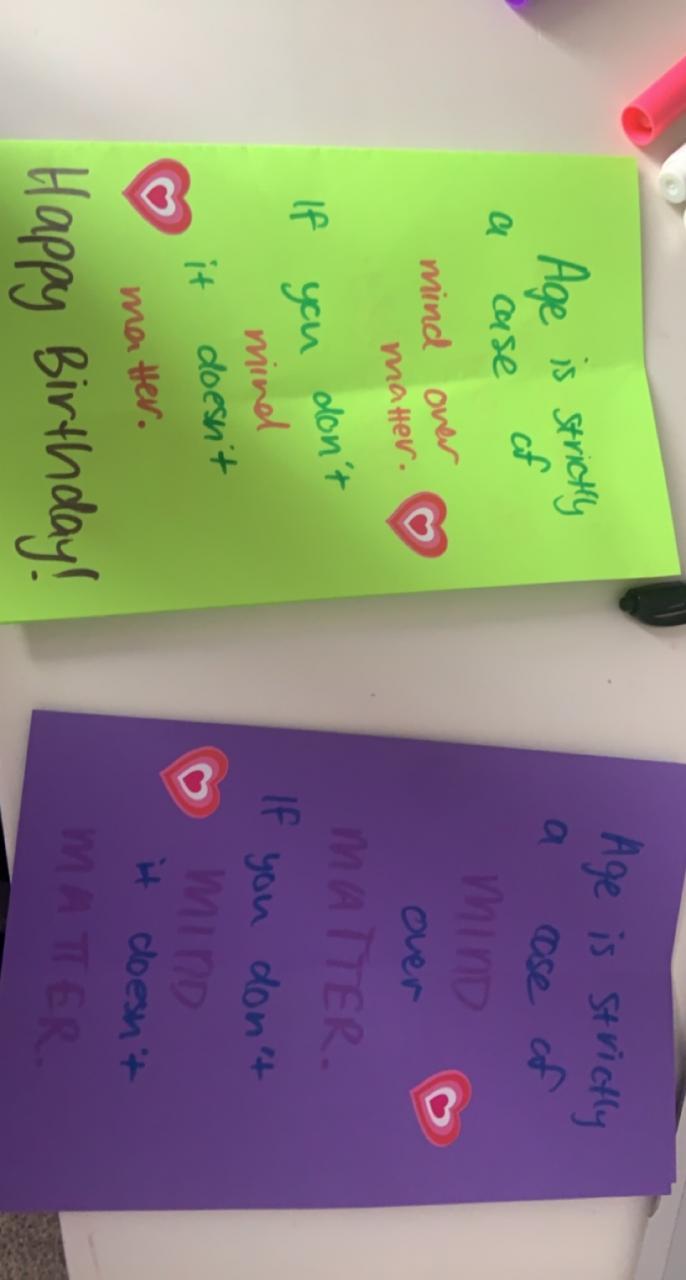 Age is strictly
a case of
mind over
matter.
If you don't
mind
it doesn't
matter.
Happy Birthday!
Age is strictly
a case of
MIND
over
MATTER.
If you don't
MIND
it doesn't
MATTER.